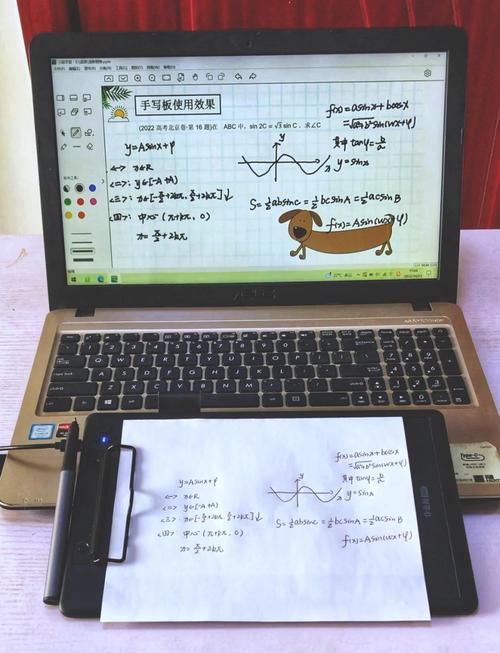 手写板使用效果
(2022 高考北京卷·第 16 题)在 ABC 中, sin 2C = √3 sin C, 求∠C
f(x)=asinx+bcosx
=√(a²+b²)sin(wx+φ)
其中 tanφ=b/a
y=sinx
y=Asinx+φ
<一> x∈R
<二>: y∈[-A+A]
<三>: x∈[-π/2+2kπ, π/2+2kπ]↓
<四>: 中心(π+kπ, 0)
x=π/2+2kπ
y
x
S=½absinc=½bcsinA=½acsinB
f(x)=Asin(wx+φ)
ASUS
intel
y=Asinx+φ
<一> x∈R
<二> y∈[-A+A]
<三> x∈[-π/2+2kπ, π/2+2kπ]↓
<四> 中心(π+kπ, 0)
x=π/2+2kπ
y
x
f(x)=asinx+bcosx
=√(a²+b²)sin(wx+φ)
其中 tanφ=b/a
y=sinx
S=½absinc=½bcsinA=½acsinB
f(x)=Asin(wx+φ)